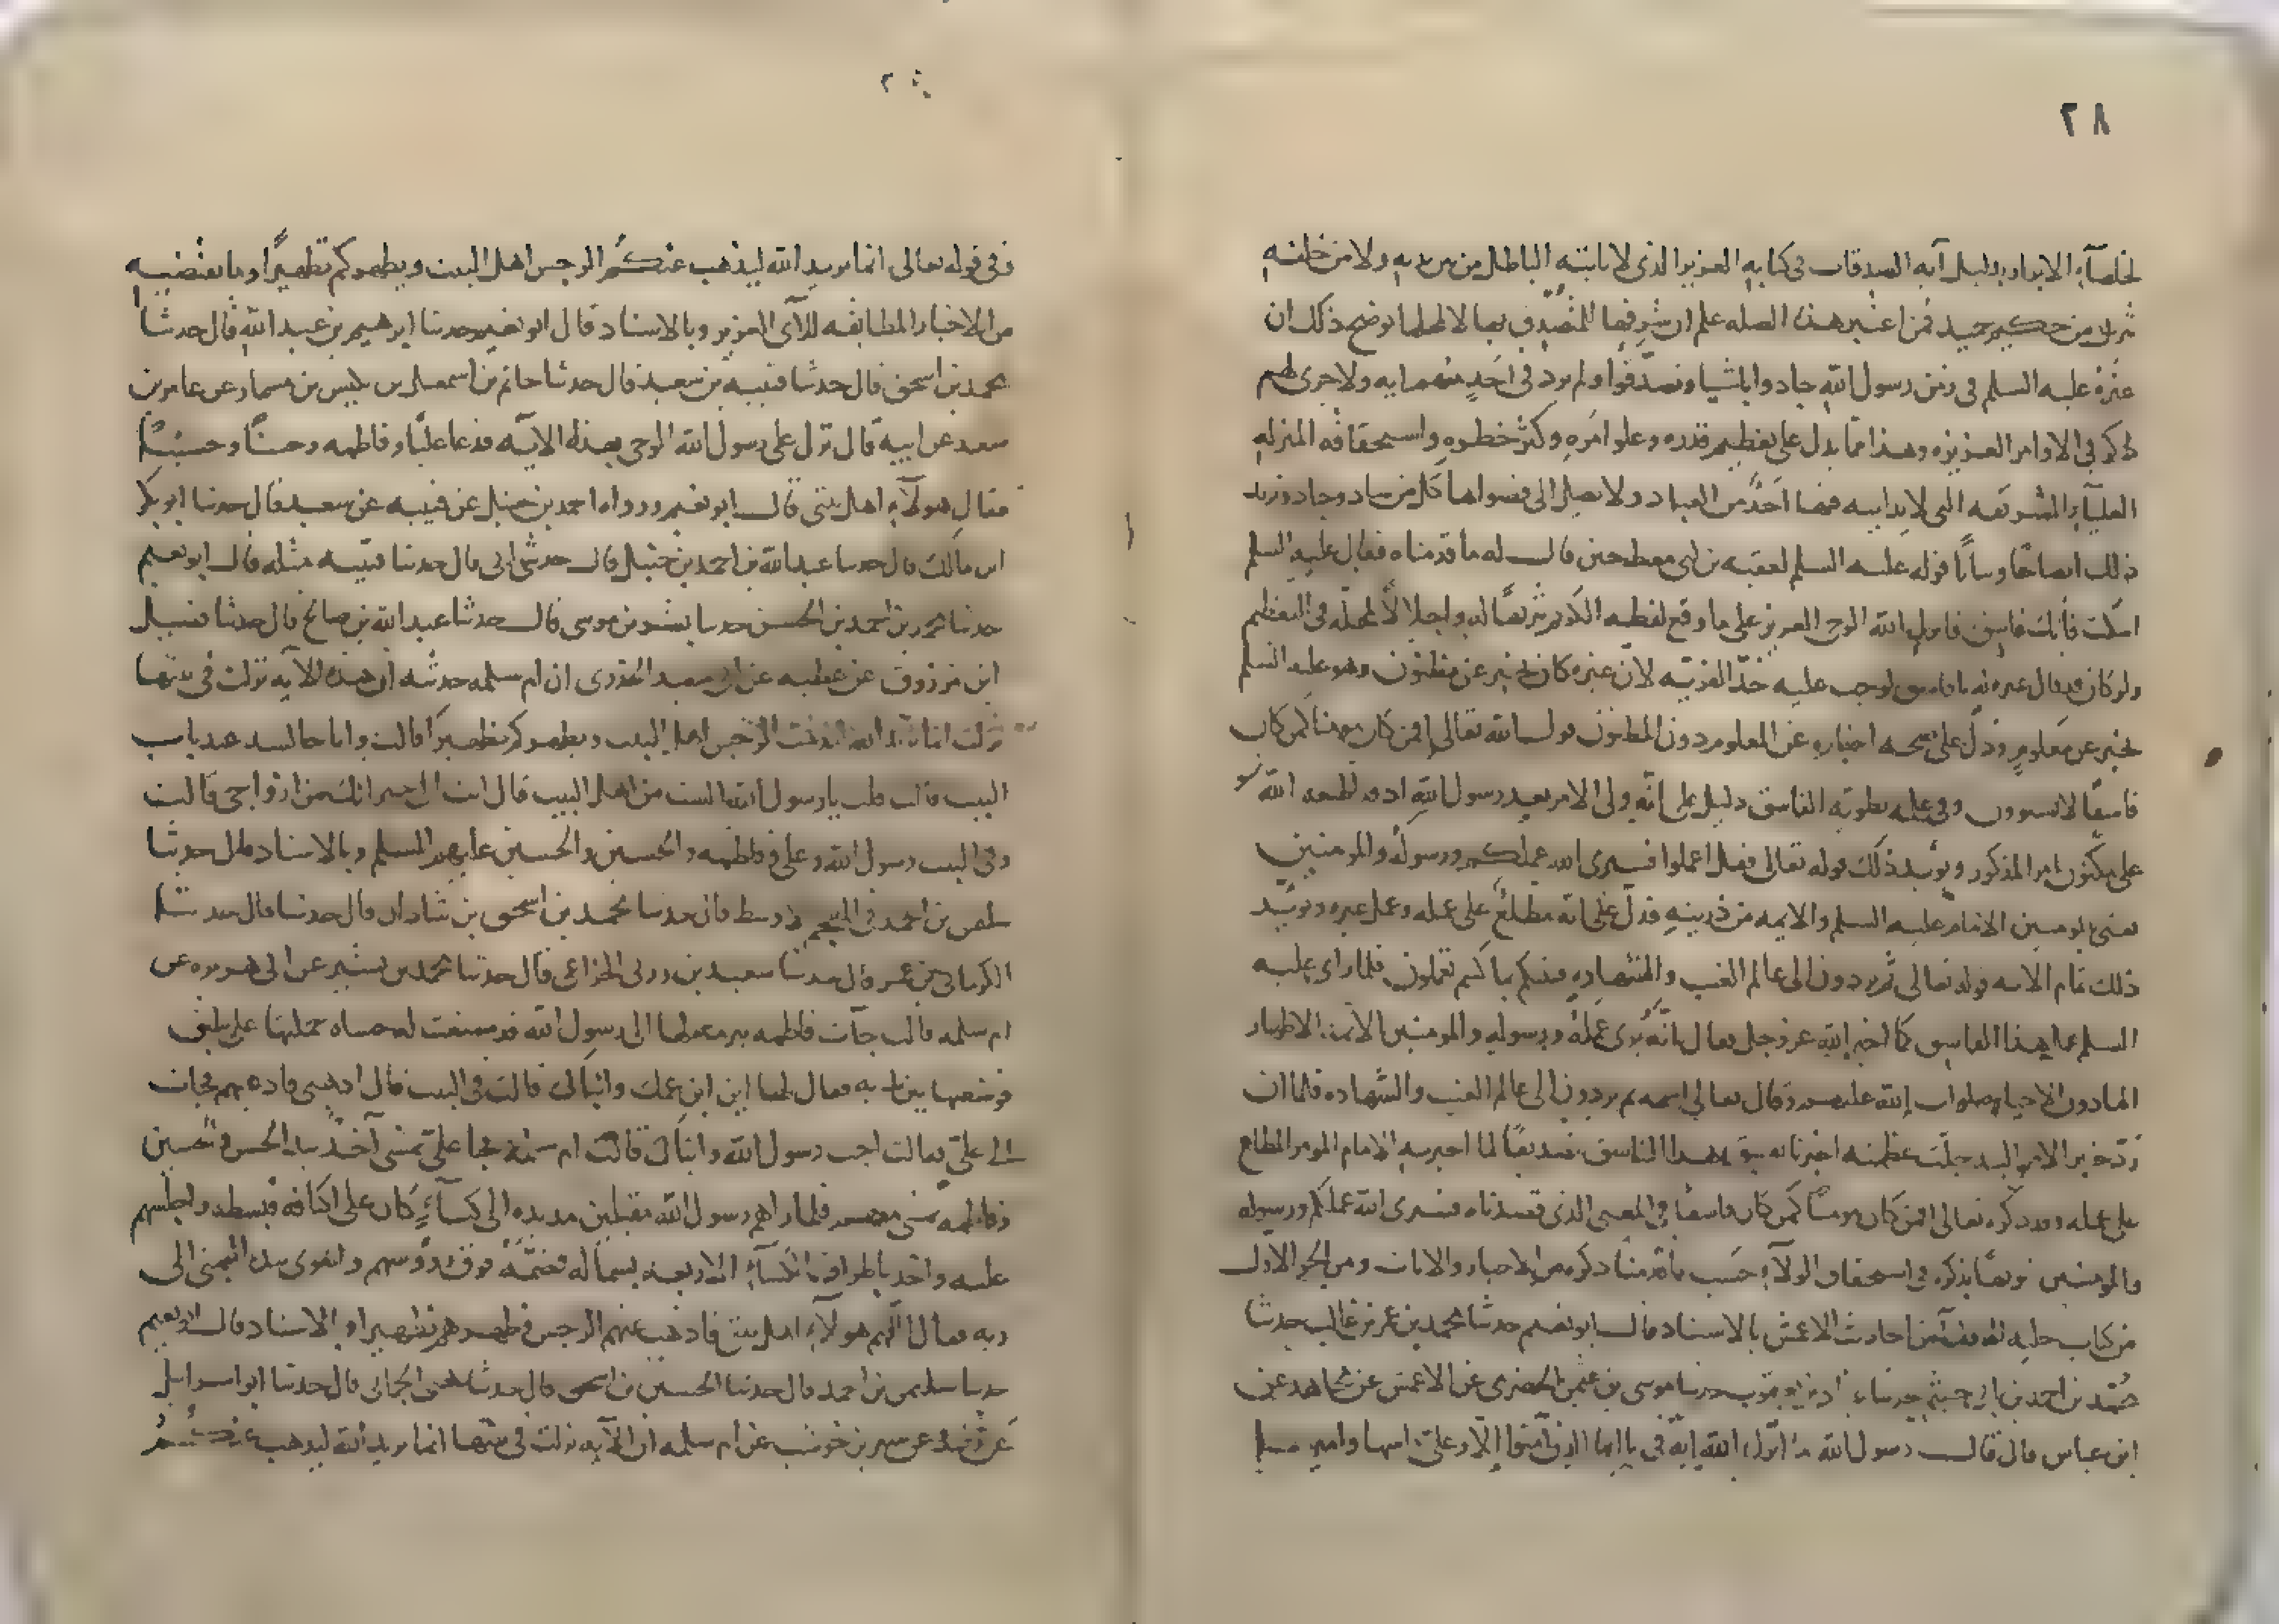 ٢٨
لخلصآء الابعاد بدليل آيه الصدقات في كتابه العزيز الذي لا ياتيه الباطل من بين يديه ولا من خلفه
تنزيل من حكيم حميد فمن اعتبر هذه الصله علم ان شرفها للمتصدق بها لا لها يوضح ذلك ان
غيره عليه السلم في زمن رسول الله جاد وا باشيا وتصدقوا ولم يرد في احد منهما ايه ولا جرى لهم
ذكر في الاوامر العزيزه وهذا مما يدل على تعظيم قدره وعلو امره وكثر خطره واستحقاقه المنزله
العليآء الشريفه التي لا يدانيه فيها احد من العباد ولا يصل الى قصواها كل من ساد وجاد ونزيد
ذلك ايضاحا وبيانا قوله عليه السلم لعقبه بن ابي معيط حين قال له ما قدمناه فقال عليه السلم
اسكت فانك فاسق فانزل الله الوحي العزيز على ما وقع لفظه الكريم تشريفا له واجلالا لمحله في التعظيم
ولو كان قد قال غيره له يا فاسق لوجب عليه حد الفريه لان غيره كان يخبر عن مظنون وهو عليه السلم
يخبر عن معلوم ودل على صحه اخباره عن المعلوم دون المظنون قول الله تعالى افمن كان مومنا كمن كان
فاسقا لا يستوون وفي علمه بطويه الفاسق دليل على انه ولي الامر بعد رسول الله اذ قد اطلعه الله
على مكنون امر المذكور ويؤيد ذلك قوله تعالى فقل اعملوا فسيرى الله عملكم ورسوله والمومنين
يعني بالمومنين الامام عليه السلم والايمه من ذريته فدل على انه مطلع على عمله وعمل غيره ويؤيد
ذلك تمام الايه قوله تعالى ثم يردون الى عالم الغيب والشهاده فينبئكم بما كنتم تعملون فلما راى عليه
السلم عمل هذا الفاسق كما اخبر الله عز وجل فقال انه يرى عمله ورسوله والمومنين الائمه الاطهار
الهادون الاخيار صلوات الله عليهم وقال تعالى اسمه ثم يردون الى عالم الغيب والشهاده فلما ان
رد خبر الامر اليه جلت عظمته اخبرنا بفسق هذا الفاسق تصديقا لما اخبر به الامام المومن المطلع
على عمله وورد ذكره تعالى افمن كان مومنا كمن كان فاسقا في المعنى الذي قصدناه فسيرى الله عملكم ورسوله
والمومنين تنويها بذكره في استحقاق الولآء حسب ما قدمنا ذكره من الاخبار والايات ومن الجزء الاول
من كتاب حليه لابي نعيم من احاديث الاعمش بالاسناد قال ابو نعيم حدثنا محمد بن عمر بن غالب حدثنا
محمد بن احمد بن ابي خيثم حدثنا عباد بن يعقوب حدثنا موسى بن عثمن الحضرمي عن الاعمش عن مجاهد عن
ابن عباس قال قال رسول الله ما انزل الله ايه في يا ايها الذين آمنوا الا وعلي راسها واميرها
وفي قوله تعالى انما يريد الله ليذهب عنكم الرجس اهل البيت ويطهركم تطهيرا وما يقتضيه
من الاخبار المطابقه للآي العزيز وبالاسناد قال ابو نعيم حدثنا ابرهيم بن عبد الله قال حدثنا
محمد بن اسحق قال حدثنا قتيبه بن سعيد قال حدثنا حاتم بن اسمعيل بن بكير بن مسمار عن عامر بن
سعد عن ابيه قال نزل على رسول الله الوحي بهذه الايه فدعا عليا وفاطمه وحسنا وحسينا
فقال هولآء اهل بيتي قال ابو نعيم ورواه احمد بن حنبل عن قتيبه عن سعيد قال حدثنا ابو بكر
ابن مالك قال حدثنا عبد الله بن احمد بن حنبل قال حدثني ابي قال حدثنا قتيبه مثله قال ابو نعيم
حدثنا محمد بن احمد بن الحسن حدثنا بشر بن موسى قال حدثنا عبد الله بن صالح قال حدثنا فضيل
ابن مرزوق عن عطيه عن ابي سعيد الخدري ان ام سلمه حدثته ان هذه الآيه نزلت في بيتها
نزلت انما يريد الله ليذهب الرجس اهل البيت ويطهركم تطهيرا قالت وانا جالسه عند باب
البيت قالت قلت يا رسول الله الست من اهل البيت قال انت الى خير انك من ازواجي قالت
وفي البيت رسول الله وعلي وفاطمه والحسن والحسين عليهم السلم وبالاسناد قال حدثنا
بن احمد في المعجم قال حدثنا محمد بن اسحق بن شاذان قال حدثنا قال حدثنا
الكرماني بن عمر قال حدثنا سعيد بن الخزاعي قال حدثنا محمد بن بشير عن ابي هريره عن
ام سلمه قالت جآت فاطمه ببرمه لها الى رسول الله قد صنعت له حساه تحملها على طبق
فوضعتها بين يديه فقال لها اين ابن عمك وابناك قالت في البيت قال اذهبي فادعيهم فجات
الى علي فقالت اجب رسول الله وابناك قالت ام سلمه فجا علي يمشي آخذ بيد الحسن والحسين
وفاطمه تمشي معهم فلما راهم رسول الله مقبلين مد يده الى كسآء كان على اكتافه فبسطه واجلسهم
عليه واخذ باطراف الكسآء الاربعه بشماله فضمه فوق روسهم واهوى بيده اليمنى الى
ربه فقال اللهم هولآء اهل بيتي فاذهب عنهم الرجس وطهرهم تطهيرا وبالاسناد قال ابو نعيم
حدثنا سليمن بن احمد قال حدثنا الحسين بن اسحق قال حدثنا يحيى الحماني قال حدثنا ابو اسرائيل
عن زبيد عن شهر بن حوشب عن ام سلمه ان الآيه نزلت في بيتها انما يريد الله ليذهب عنكم